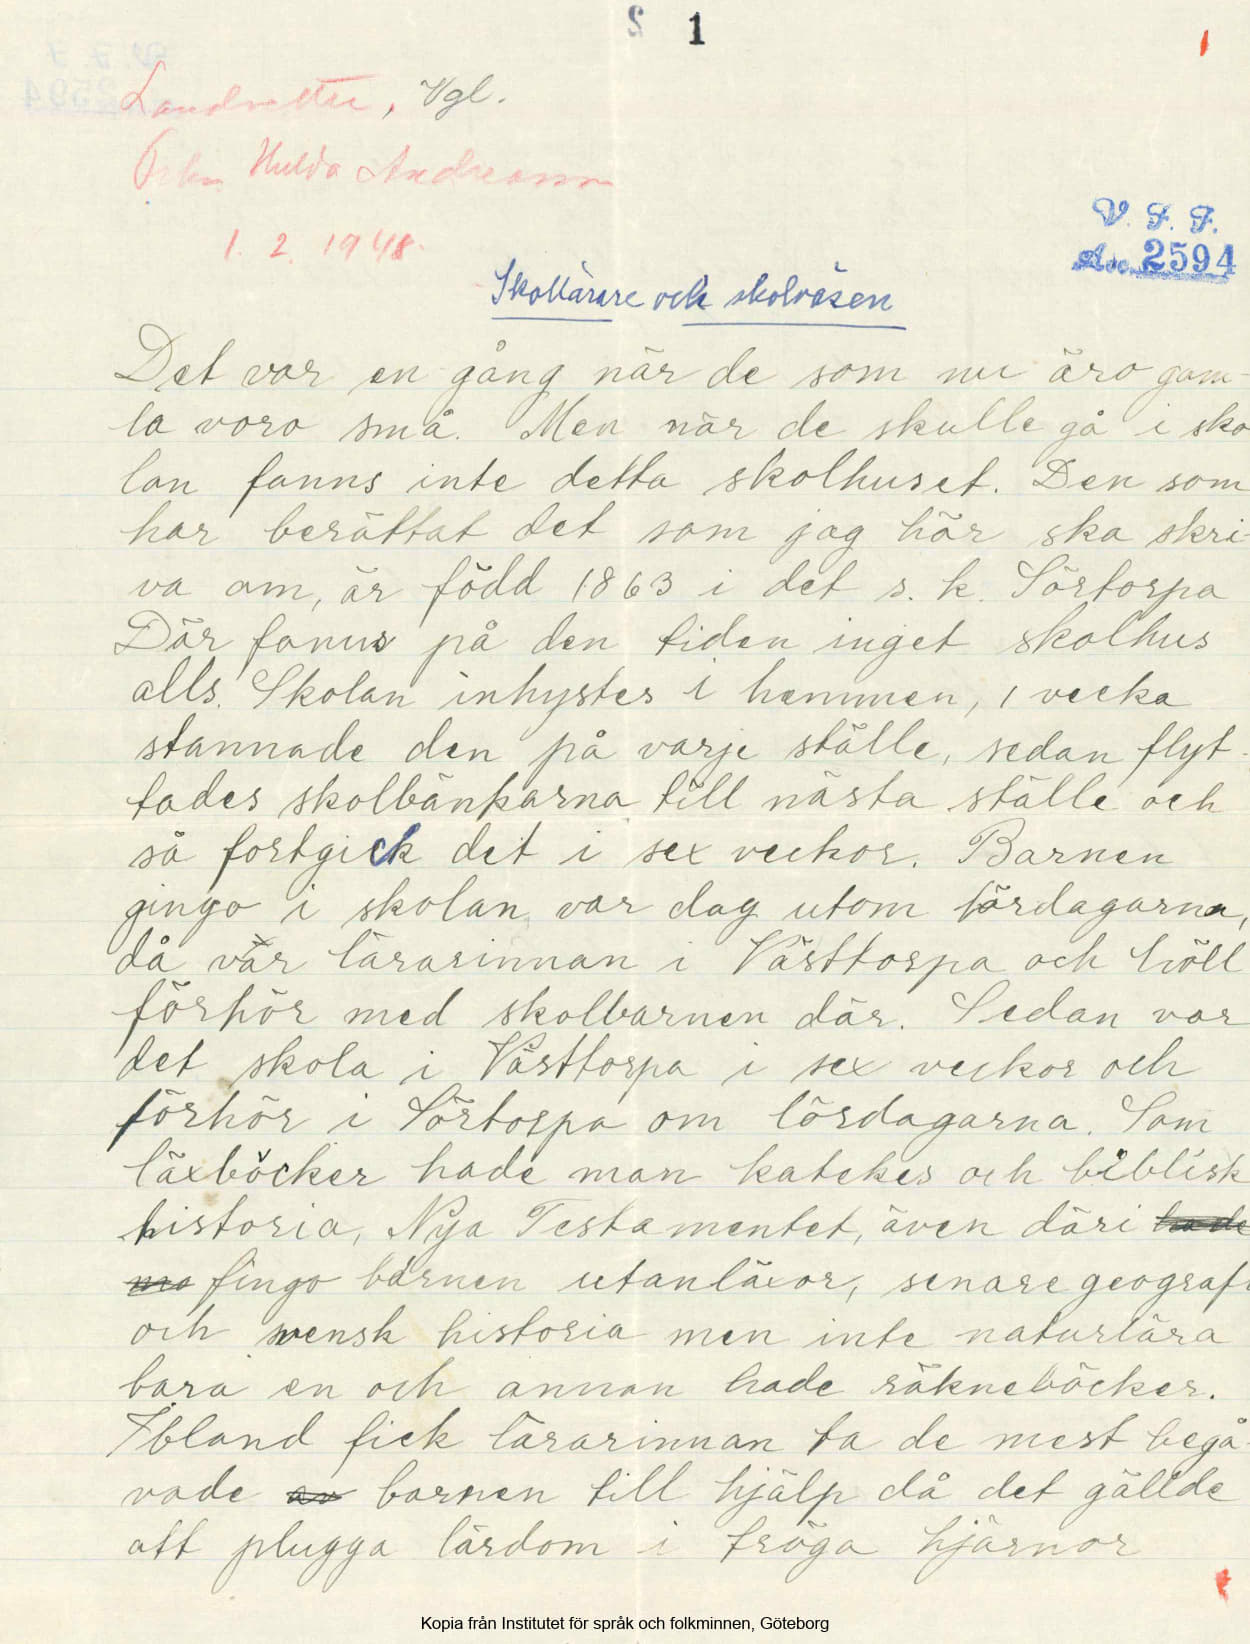 1
Landvetter, Vgl.
Hulda Andreasson
1. 2. 1948.
V. F. F.
Acc. 2594
Skollärare och skolväsen
Det var en gång när de som nu äro gam-
la voro små. Men när de skulle gå i sko
lan fanns inte detta skolhuset. Den som
har berättat det som jag här ska skri-
va om, är född 1863 i det s. k. Sörtorpa
Där fanns på den tiden inget skolhus
alls. Skolan inhystes i hemmen, 1 vecka
stannade den på varje ställe, sedan flyt-
tades skolbänkarna till nästa ställe och
så fortgick det i sex veckor. Barnen
gingo i skolan var dag utom lördagarna,
då var lärarinnan i Västtorpa och höll
förhör med skolbarnen där. Sedan var
det skola i Västtorpa i sex veckor och
förhör i Sörtorpa om lördagarna. Som
läxböcker hade man katekes och biblisk
historia, Nya Testamentet, även däri hade
ma fingo barnen utanläxor, senare geografi
och svensk historia men inte naturlära
bara en och annan hade räkneböcker.
Ibland fick lärarinnan ta de mest begå-
vade av barnen till hjälp då det gällde
att plugga lärdom i tröga hjärnor
Kopia från Institutet för språk och folkminnen, Göteborg